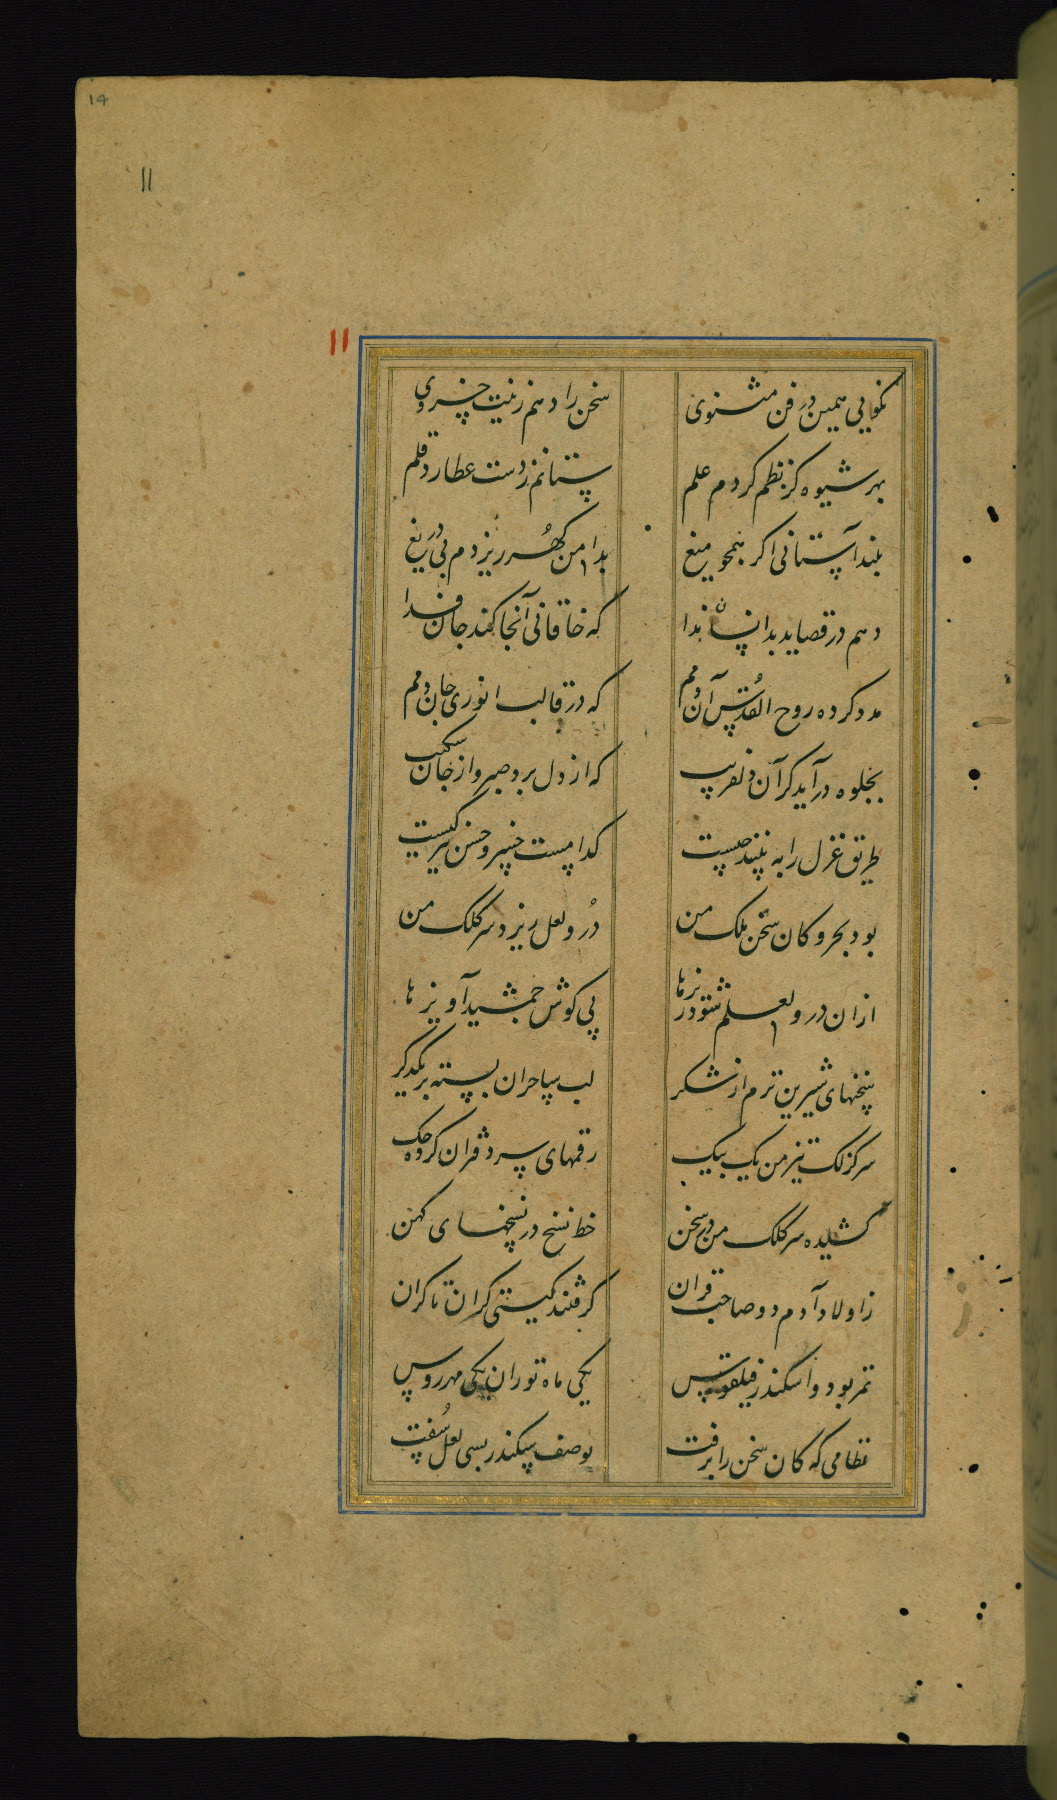 ۱۴
۱۱
۱۱
نکویی همین در فن مثنوی سخن را دهم زینت خسروی
بهر شیوه کز نظم کردم علم ستانم ز دست عطارد قلم
بلند آستانی اکر همچو میغ بدامن کهر ریزدم بی دریغ
دهم در قصاید بدانسان ندا که خاقانی آنجا کند جان فدا
مدد کرده روح القدس آن دمم که در قالب انوری جان دمم
بجلوه در آید کر آن دلفریب که از دل برد صبر و از جان شکیب
طریق غزل را به بینند چیست کدامست خسرو حسن نیز کیست
بود بحر و کان سخن ملک من در و لعل ریزد سر کلک من
ازان در و لعلم شود در پی کوش جمشید آویزها
سخنهای شیرین ترم از شکر لب ساحران بسته بر یکدکر
سر کزلک تیز من یک بیک رقمهای سر دفتران کرده حک
کشیده سر کلک من در سخن خط نسخ در نسخهای کهن
ز اولاد آدم دو صاحب قران کرفتند کیتی کران تا کران
تمر بود و اسکندر فیلقوس یکی ماه توران یکی مهر روس
نظامی که کان سخن را برفت بوصف سکندر بسی لعل سفت